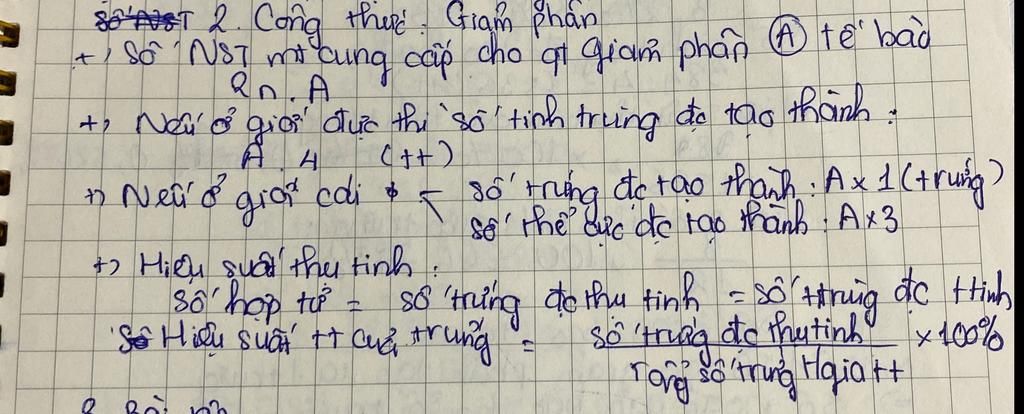 2. Công thức: Giảm phân
+) Số NST mt cung cấp cho qt giảm phân Ⓐ tế bào
2n.A
+) Nếu ở giới đực thì số tinh trùng đc tạo thành:
A.4 (tt)
+) Nếu ở giới cái < số trứng đc tạo thành: A x 1 (trứng)
số thể cực đc tạo thành: A x 3
+) Hiệu suất thụ tinh:
số hợp tử = số trứng đc thụ tinh = số ttrùng đc ttinh
Hiệu suất tt của trứng = số trứng đc thụ tinh x 100%
Tổng số trứng tgia tt